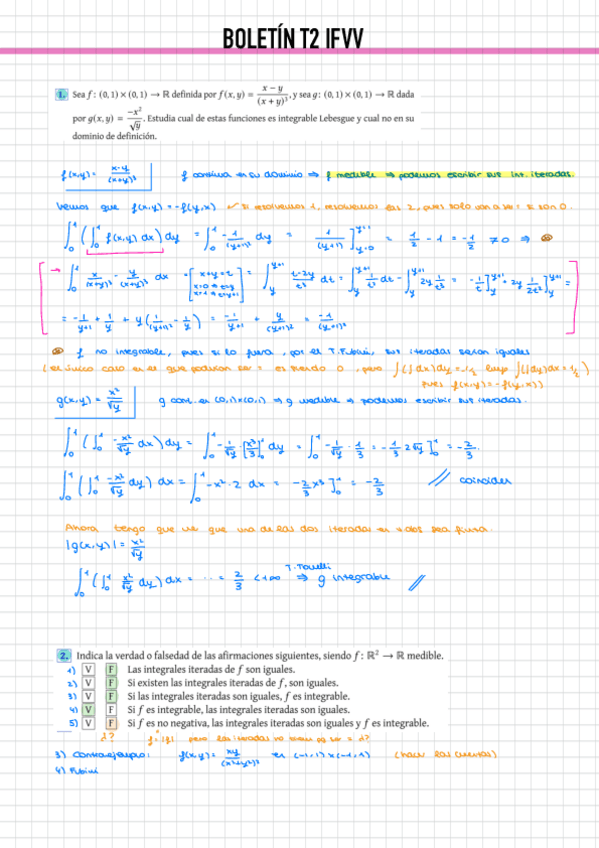 BOLETÍN T2 IFVV
1. Sea f : (0, 1) × (0, 1) → ℝ definida por f(x, y) = (x − y)/(x + y)³, y sea g : (0, 1) × (0, 1) → ℝ dada
por g(x, y) = −x²/√y. Estudia cual de estas funciones es integrable Lebesgue y cual no en su
dominio de definición.
f(x,y) = (x-y)/(x+y)³ f continua en su dominio ⇒ f medible ⇒ podemos escribir sus int. iteradas.
Vemos que f(x,y) = -f(y,x) ✓ si resolvemos 1, resolvemos las 2, pues solo van a ser = si son 0.
∫₀¹ (∫₀¹ f(x,y) dx) dy = ∫₀¹ -1/(y+1)² dy = 1/(y+1) ]y=1 y=0 = 1/2 - 1 = -1/2 ≠ 0 ⇒
→ ∫₀¹ x/(x+y)³ - y/(x+y)³ dx = [x+y=t x=0 → t=y x=1 → t=y+1] = ∫ (t-2y)/t³ dt = ∫ 1/t² dt - ∫ 2y 1/t³ dt = -1/t ] + 2y 1/2t² ] =
= -1/(y+1) + 1/y + y(1/(y+1)² - 1/y²) = -1/(y+1) + y/(y+1)² = -1/(y+1)²
f no integrable, pues si lo fuera, por el T. Fubini, sus iteradas serían iguales
(el único caso en el que podrían ser = es siendo 0, pero ∫(∫dx)dy = -1/2 luego ∫(∫dy)dx = 1/2
pues f(x,y) = -f(y,x))
g(x,y) = x²/√y g cont. en (0,1)x(0,1) ⇒ g medible ⇒ podemos escribir sus iteradas.
∫₀¹ (∫₀¹ -x²/√y dx) dy = ∫₀¹ -1/√y · [x³/3]₀¹ dy = ∫₀¹ -1/√y · 1/3 = -1/3 2√y ]₀¹ = -2/3.
∫₀¹ (∫₀¹ -x²/√y dy) dx = ∫₀¹ -x² · 2 dx = -2/3 x³ ]₀¹ = -2/3 // coinciden
Ahora tengo que ver que una de las dos iteradas en valabs sea finita.
|g(x,y)| = x²/√y
∫₀¹ (∫₀¹ x²/√y dy) dx = ... = 2/3 < +∞ ⇒ T. Tonelli g integrable //
2. Indica la verdad o falsedad de las afirmaciones siguientes, siendo f : ℝ² → ℝ medible.
1) V F Las integrales iteradas de f son iguales.
2) V F Si existen las integrales iteradas de f, son iguales.
3) V F Si las integrales iteradas son iguales, f es integrable.
4) V F Si f es integrable, las integrales iteradas son iguales.
5) V F Si f es no negativa, las integrales iteradas son iguales y f es integrable.
¿? f = |f| pero las iteradas no tienen pq ser < ∞?
3) Contraejemplo: f(x,y) = xy/(x²+y²)² en (-1,1)x(-1,1) (hacer las cuentas)
4) Fubini